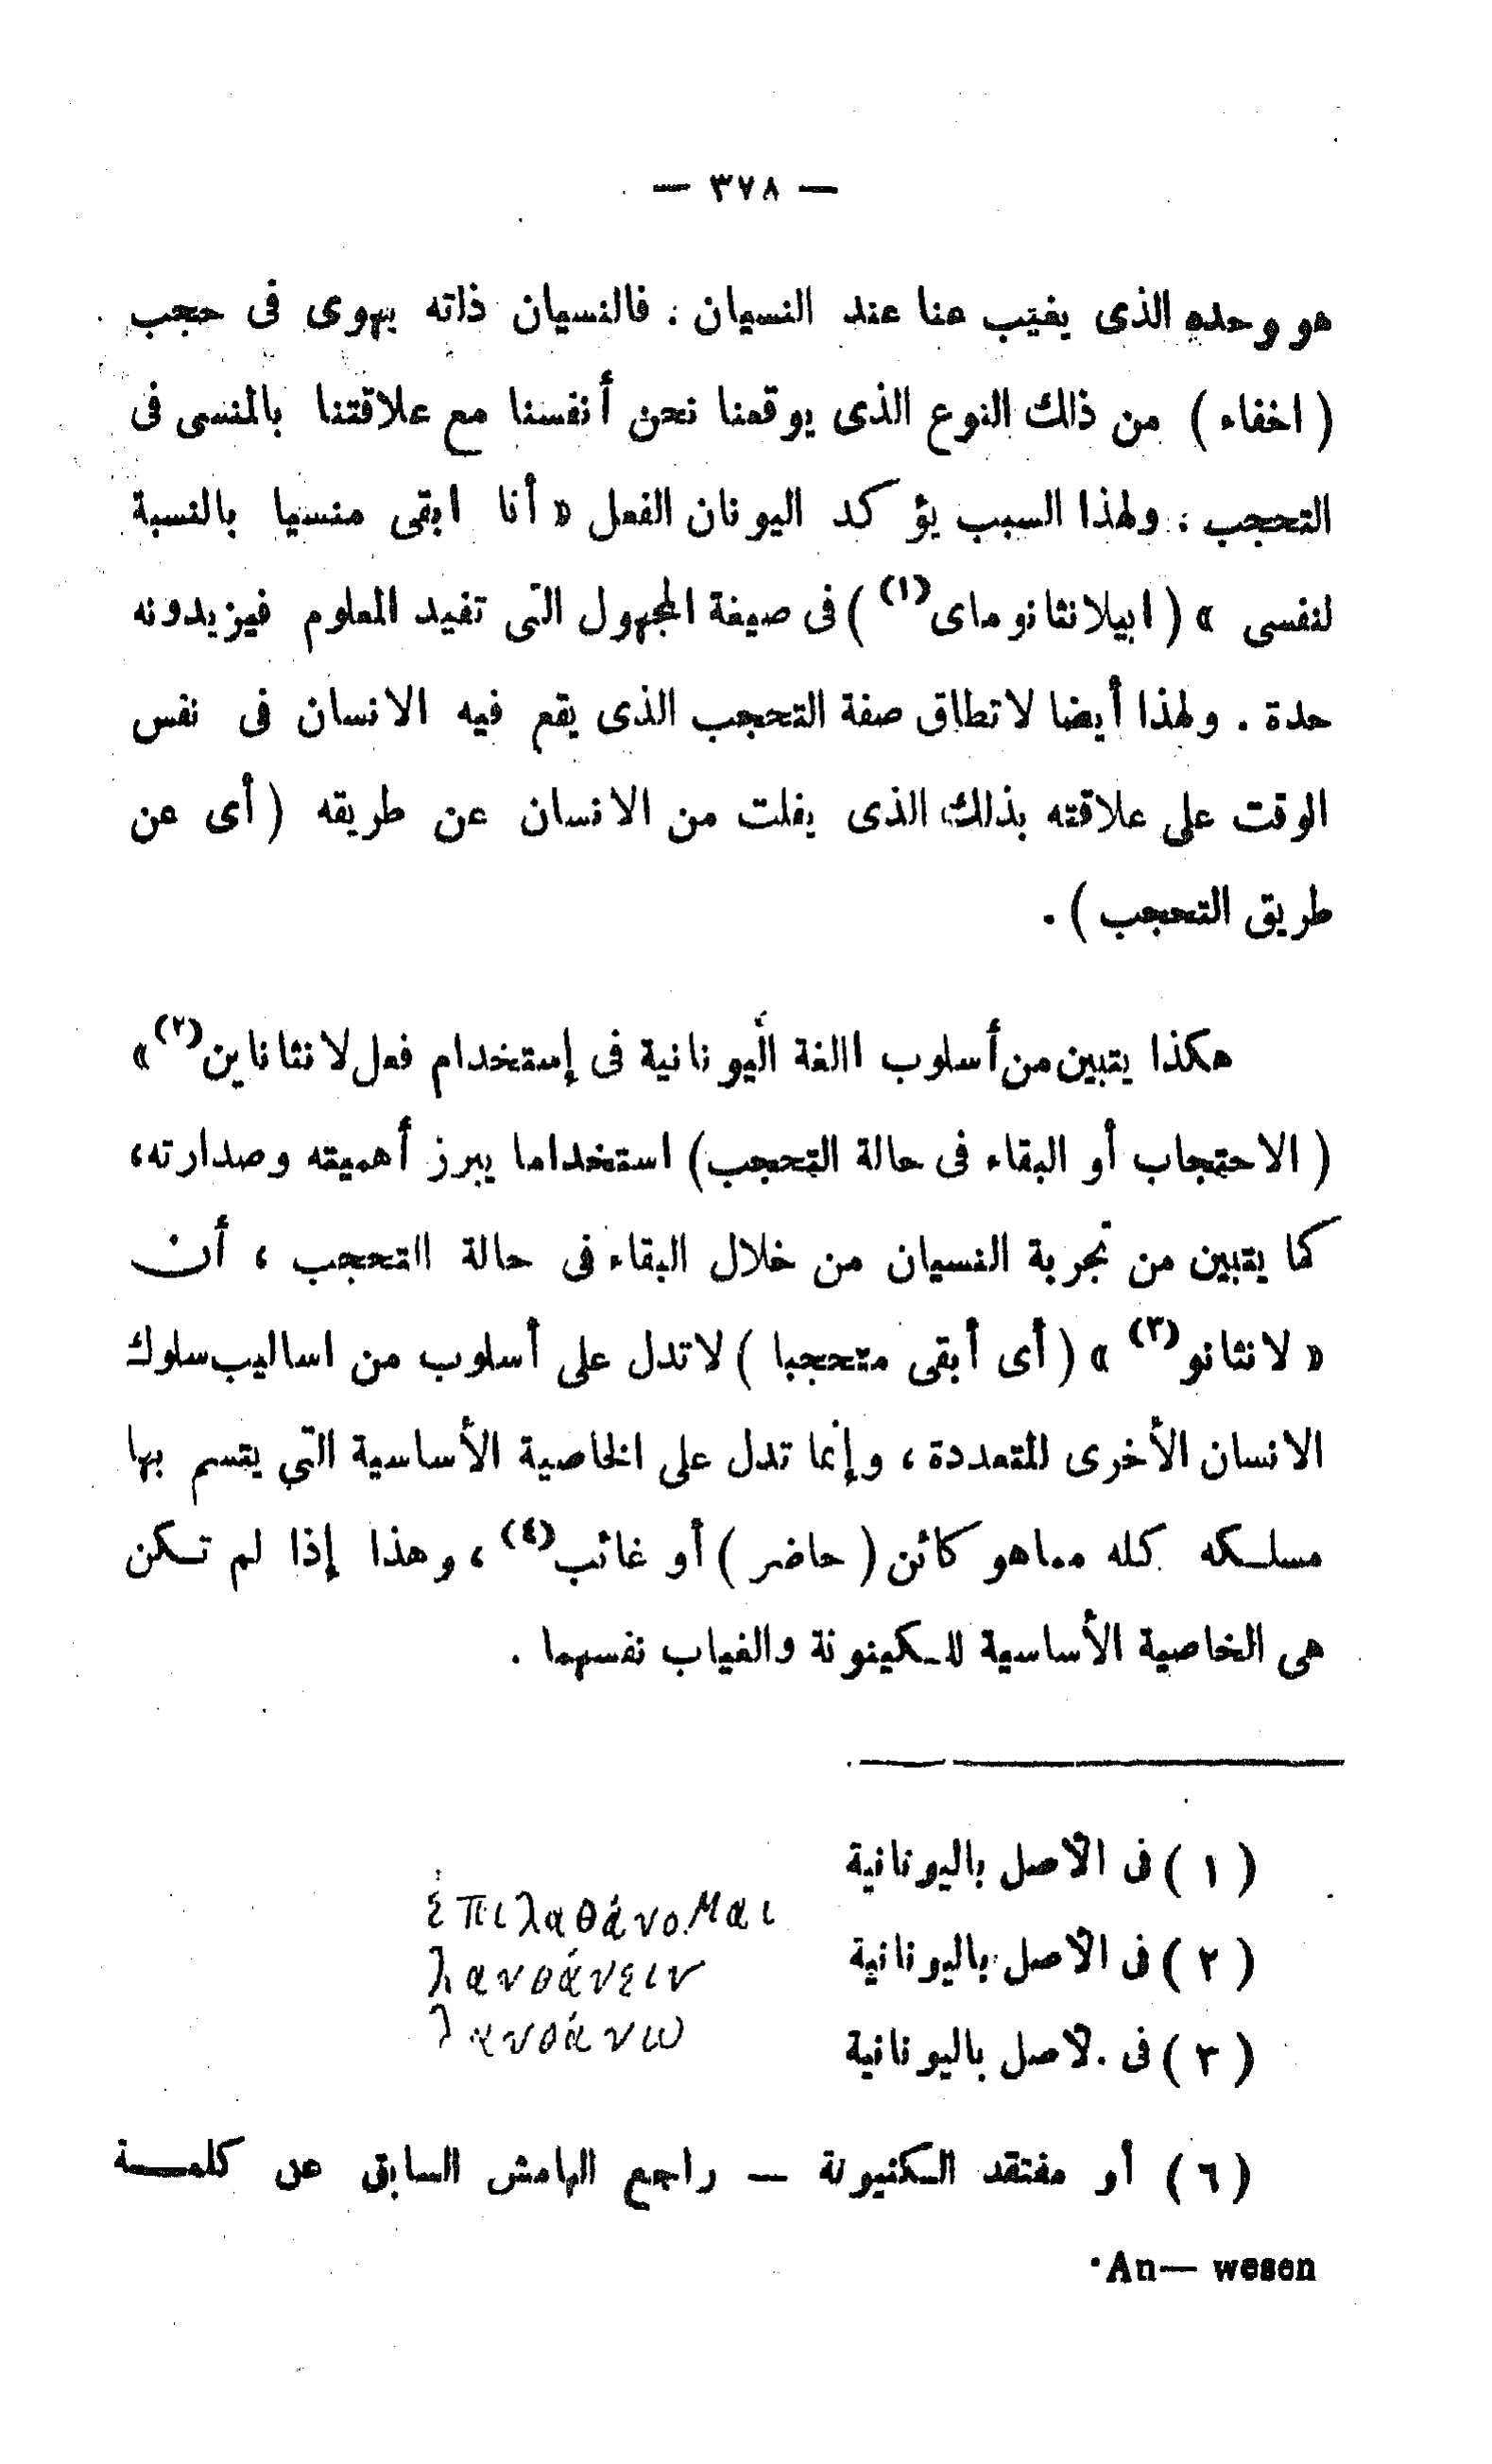 — ٣٧٨ —
هو وحده الذى يغيب عنا عند النسيان . فالنسيان ذاته يهوى فى حجب
( اخفاء ) من ذلك النوع الذى يوقعنا نحن أنفسنا مع علاقتنا بالمنسى فى
التحجب . ولهذا السبب يؤكد اليونان الفعل « أنا ابقى منسيا بالنسبة
لنفسى » ( ابيلانثانوماى(١) ) فى صيغة المجهول التى تفيد المعلوم فيزيدونه
حدة . ولهذا أيضا لاتطاق صفة التحجب الذى يقع فيه الانسان فى نفس
الوقت على علاقته بذلك الذى يفلت من الانسان عن طريقه ( أى عن
طريق التحجب ) .
هكذا يتبين من أسلوب االغة اليونانية فى إستخدام فعل لانثاناين(٢) »
( الاحتجاب أو البقاء فى حالة التحجب ) استخداما يبرز أهميته وصدارته،
كما يتبين من تجربة النسيان من خلال البقاء فى حالة التحجب ، أن
« لانثانو(٣) » ( أى أبقى متحجبا ) لاتدل على أسلوب من اساليب سلوك
الانسان الأخرى المتعددة ، وإنما تدل على الخاصية الأساسية التي يتسم بها
مسلكه كله مماهو كائن ( حاضر ) أو غائب(٤) ، وهذا إذا لم تكن
هى الخاصية الأساسية للكينونة والغياب نفسهما .
( ١ ) فى الأصل باليونانية ἐπιλαθάνομαι
( ٢ ) فى الأصل باليونانية λανθάνειν
( ٣ ) فى .لاصل باليونانية λανθάνω
( ٦ ) أو مفتقد الكنيونة — راجع الهامش السابق عن كلمة
An— wesen.